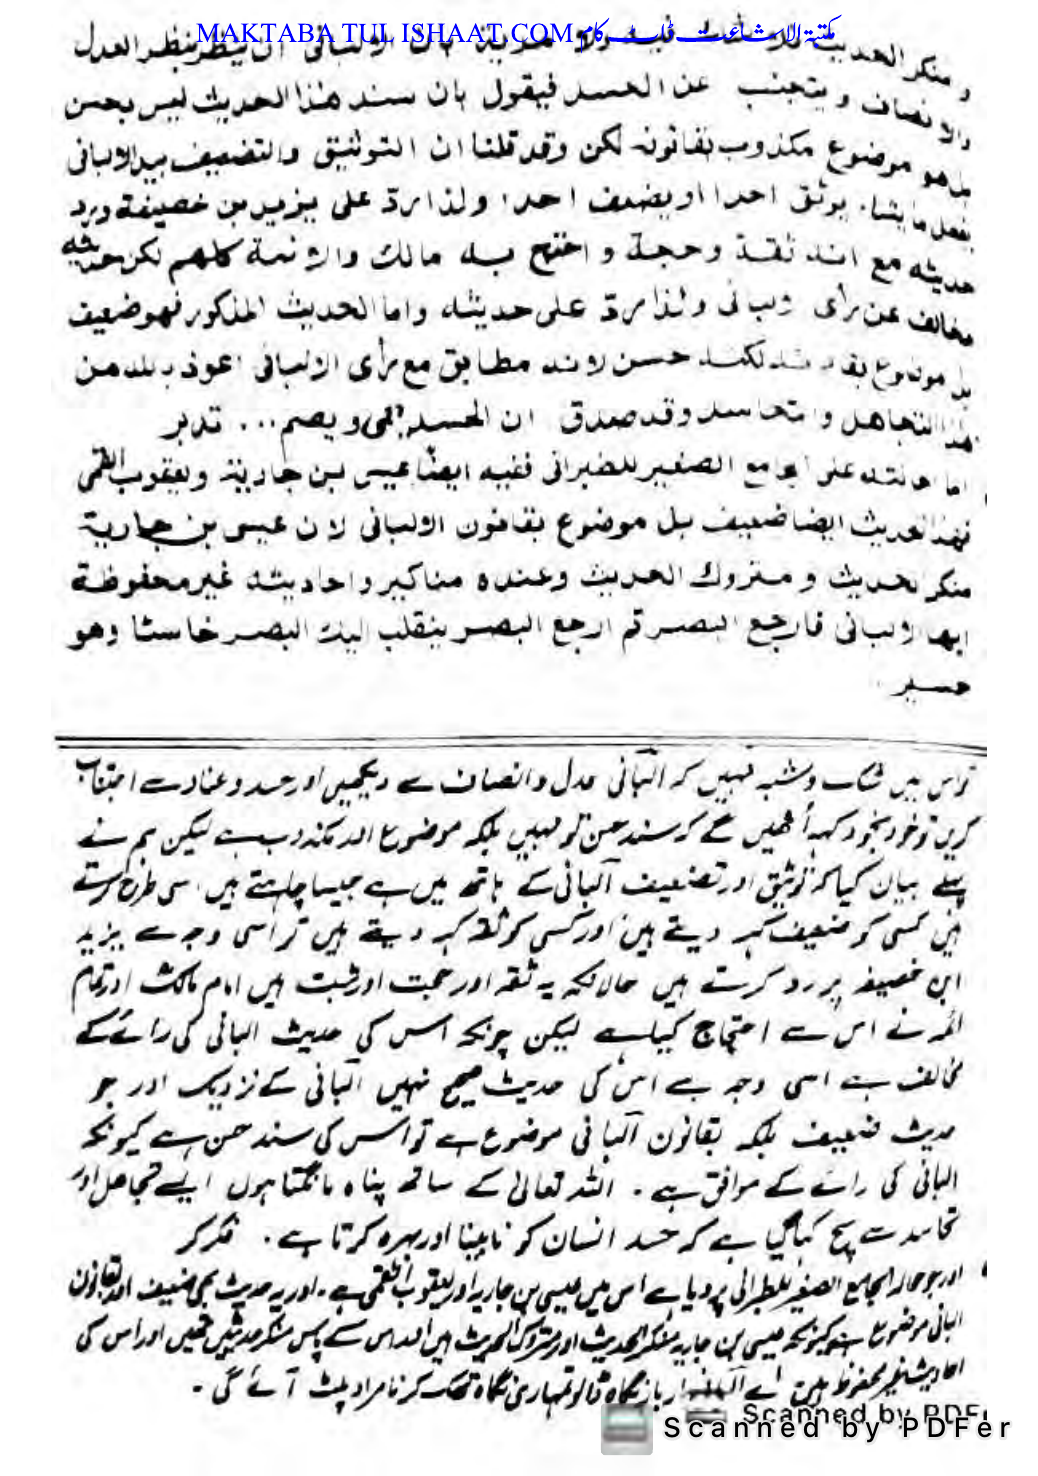 MAKTABA TUL ISHAAT.COM مکتبة الاشاعت ڈاٹ کام
و منکر الحدیث فلا شک فیه ولا مریة بان الالبانی ان ینظر بنظر العدل
والانصاف و یتجنب عن الحسد فیقول بان سند هذا الحدیث لیس بحسن
بل هو موضوع مکذوب بقانونه لکن وقد قلنا ان التوثیق والتضعیف بید الالبانی
یفعل ما یشاء یوثق احدا او یضعف احدا ولذا رد علی یزید بن خصیفة ورد
حدیثه مع انه ثقة وحجة و احتج به مالک والائمة کلهم لکن حدیثه
مخالف عن رأی البانی ولذا رد علی حدیثه واما الحدیث المذکور فهو ضعیف
بل موضوع لکنه حسن لانه مطابق مع رأی الالبانی اعوذ بالله من
هذا التجاهل و التحاسد وقد صدق ان الحسد یعمی ویصم... تدبر
اما علی الجامع الصغیر للطبرانی ففیه ایضا عیسی بن جاریة ویعقوب القمی
فهذا الحدیث ایضا ضعیف بل موضوع بقانون الالبانی لان عیسی بن جاریة
منکر الحدیث و متروک الحدیث وعنده مناکیر واحادیثه غیر محفوظة
ایها الالبانی فارجع البصر ثم ارجع البصر ینقلب الیک البصر خاسئا وهو
حسیر
تو اس میں شک و شبہ نہیں کہ البانی عدل و انصاف سے دیکھیں اور حسد و عناد سے اجتناب
کریں تو خود بخود کہہ اُٹھیں گے کہ سند حسن تو نہیں بلکہ موضوع اور مکذوب ہے لیکن ہم نے
پہلے بیان کیا کہ توثیق اور تضعیف البانی کے ہاتھ میں ہے جیسا چاہتے ہیں اسی طرح کرتے
ہیں کسی کو ضعیف کہہ دیتے ہیں اور کسی کو ثقہ کہہ دیتے ہیں تو اسی وجہ سے یزید
ابن خصیفہ پر رد کرتے ہیں حالانکہ یہ ثقہ اور حجت اور ثبت ہیں امام مالک اور تمام
ائمہ نے اس سے احتجاج کیا ہے لیکن چونکہ اس کی حدیث البانی کی رائے کے
مخالف ہے اسی وجہ سے اس کی حدیث صحیح نہیں البانی کے نزدیک اور جو
حدیث ضعیف بلکہ بقانون البانی موضوع ہے تو اس کی سند حسن ہے کیونکہ
البانی کی رائے کے موافق ہے ۔ اللہ تعالیٰ کے ساتھ پناہ مانگتا ہوں ایسے تجاھل اور
تحاسد سے سچ کہا گیا ہے کہ حسد انسان کو نابینا اور بہرہ کرتا ہے ۔ فکر کر
اور جو حوالہ الجامع الصغیر للطبرانی پر دیا ہے اس میں عیسیٰ بن جاریہ اور یعقوب القمی ہے ۔ اور یہ حدیث بھی ضعیف اور بقانون
البانی موضوع ہے کیونکہ عیسیٰ بن جاریہ منکر الحدیث اور متروک الحدیث ہیں اور اس کے پاس منکر حدیثیں تھیں اور اس کی
احادیث غیر محفوظ ہیں اے البانی بار بار نگاہ ڈالو تمہاری نگاہ تھک کر نامراد پلٹ آئے گی ۔
Scanned by PDFer
Scanned by PDFer